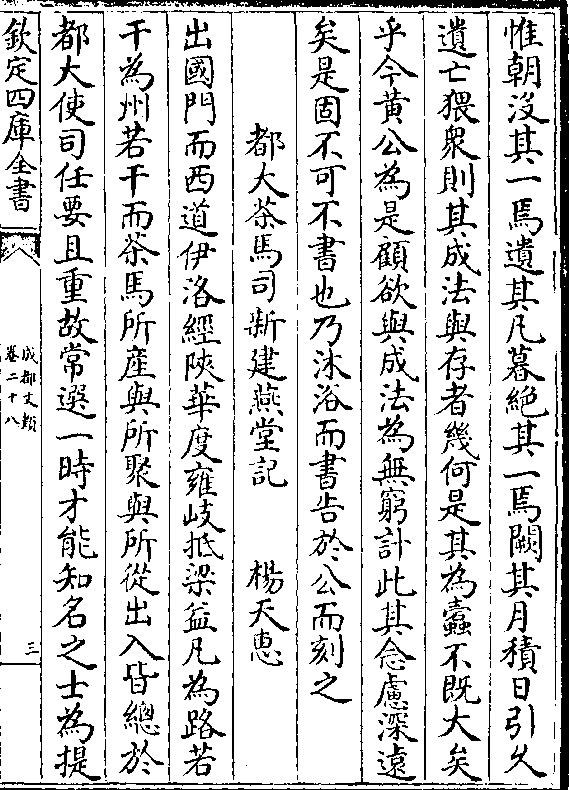 惟朝沒其一焉遺其凡暮絶其一焉闕其月積日引久
遺亡猥衆則其成法與存者幾何是其為蠧不既大矣
乎今黃公為是顧欲與成法為無窮計此其念慮深遠
矣是固不可不書也乃沐浴而書告於公而刻之
都大茶馬司新建燕堂記 楊天惠
出國門而西道伊洛經陜華度雍岐抵梁益凡為路若
干為州若干而茶馬所產與所聚與所從出入皆總於
都大使司任要且重故常選一時才能知名之士為提
欽定四庫全書
成都文類
卷二十八
三